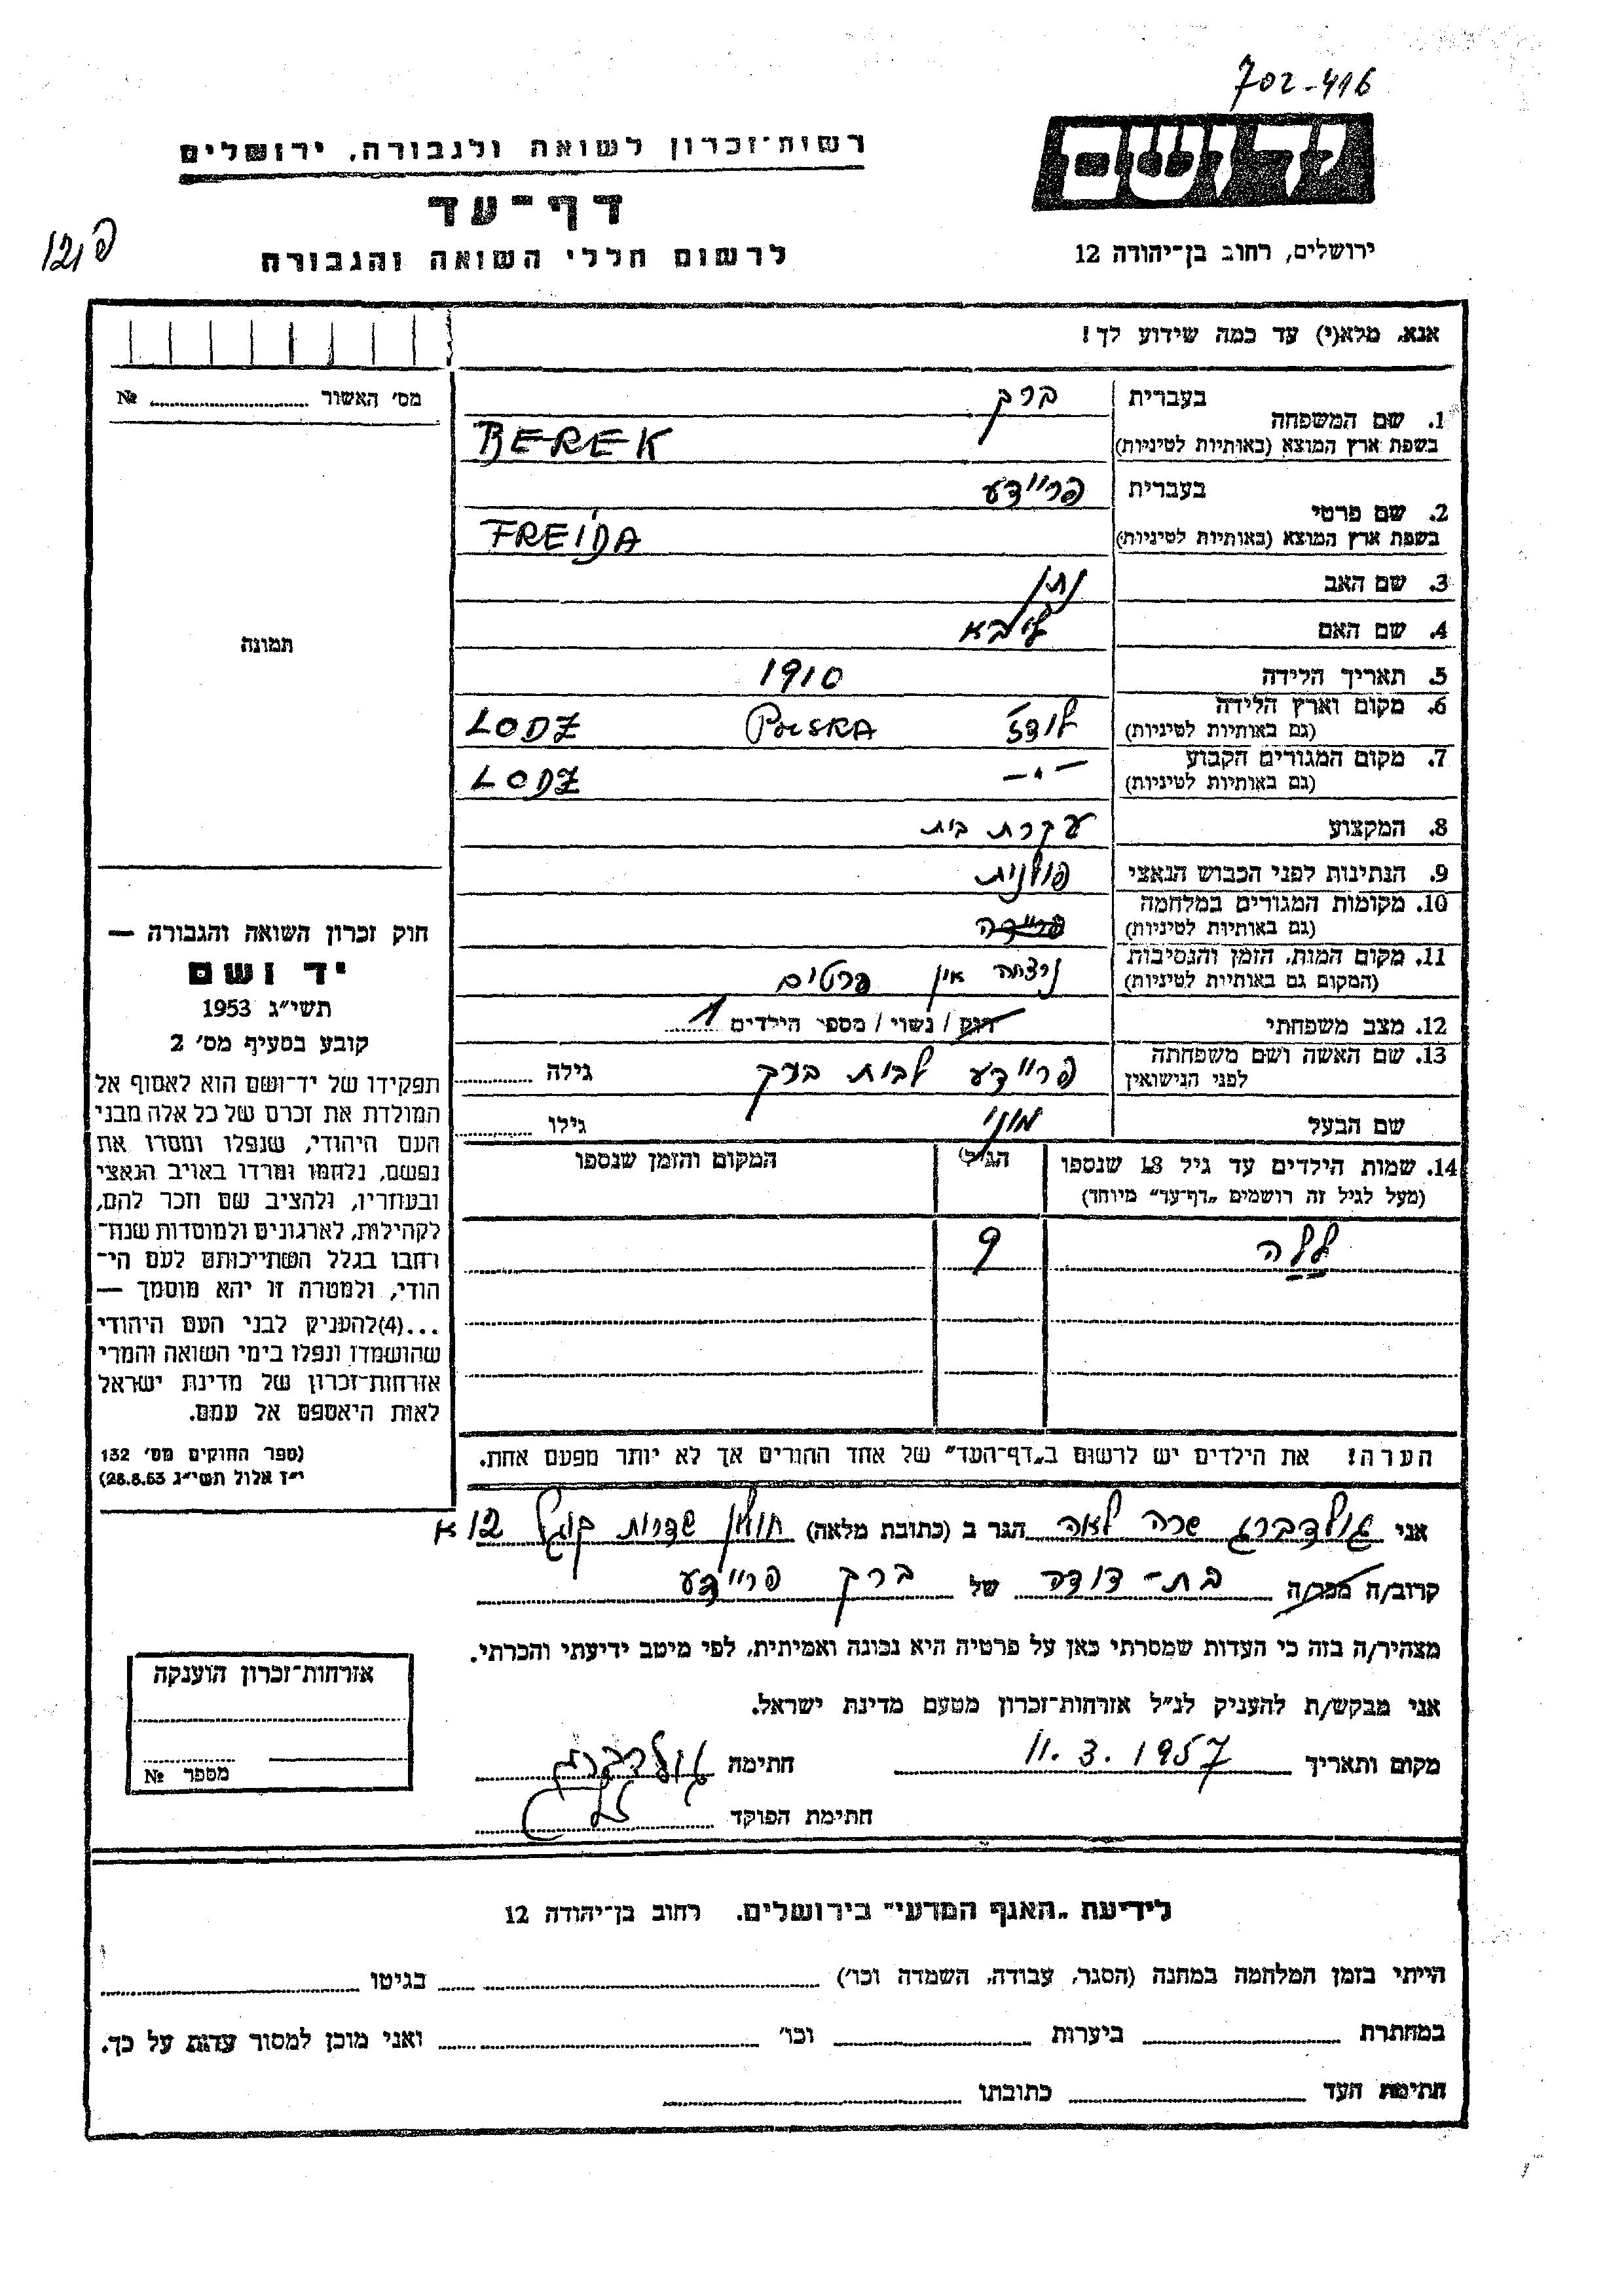 702-416
יד ושם
רשות-זכרון לשואה ולגבורה, ירושלים
דף-עד
לרשום חללי השואה והגבורה
ירושלים, רחוב בן-יהודה 12
אנא, מלא(י) עד כמה שידוע לך!
מס׳ האשור № ........
1. שם המשפחה
בעברית ברק
בשפת ארץ המוצא (באותיות לטיניות) BEREK
2. שם פרטי
בעברית פריידע
בשפת ארץ המוצא (באותיות לטיניות) FREIDA
3. שם האב נתן
4. שם האם ליבא
תמונה
5. תאריך הלידה 1910
6. מקום וארץ הלידה
(גם באותיות לטיניות) לודז׳ POLSKA LODZ
7. מקום המגורים הקבוע
(גם באותיות לטיניות) —״— LODZ
8. המקצוע עקרת בית
9. הנתינות לפני הכבוש הנאצי פולנית
10. מקומות המגורים במלחמה
(גם באותיות לטיניות)
11. מקום המות, הזמן והנסיבות
(המקום גם באותיות לטיניות) נרצחה אין פרטים
12. מצב משפחתי רוק / נשוי / מספר הילדים 1
13. שם האשה ושם משפחתה
לפני הנישואין פריידע לבית ברק גילה ........
שם הבעל מוני גילו ........
14. שמות הילדים עד גיל 18 שנספו
(מעל לגיל זה רושמים „דף-עד״ מיוחד)
הגיל
המקום והזמן שנספו
ללה 9
הערה! את הילדים יש לרשום ב„דף-העד״ של אחד ההורים אך לא יותר מפעם אחת.
חוק זכרון השואה והגבורה —
יד ושם
תשי״ג 1953
קובע בסעיף מס׳ 2
תפקידו של יד-ושם הוא לאסוף אל
המולדת את זכרם של כל אלה מבני
העם היהודי, שנפלו ומסרו את
נפשם, נלחמו ומרדו באויב הנאצי
ובעוזריו, ולהציב שם וזכר להם,
לקהילות, לארגונים ולמוסדות שנח-
רבו בגלל השתייכותם לעם הי-
הודי, ולמטרה זו יהא מוסמך —
...(4)להעניק לבני העם היהודי
שהושמדו ונפלו בימי השואה והמרי
אזרחות-זכרון של מדינת ישראל
לאות היאספם אל עמם.
(ספר החוקים מס׳ 132
י״ז אלול תשי״ג 28.8.53)
אני גולדברג שרה לאה הגר ב (כתובת מלאה) חולון שדרות קוגל 12 א
קרוב/ה מכר/ה בת-דודה של ברק פריידע
מצהיר/ה בזה כי העדות שמסרתי כאן על פרטיה היא נכונה ואמיתית, לפי מיטב ידיעתי והכרתי.
אני מבקש/ת להעניק לנ״ל אזרחות-זכרון מטעם מדינת ישראל.
מקום ותאריך 11.3.1957 חתימה גולדברג
חתימת הפוקד
אזרחות-זכרון הוענקה
מספר №
לידיעת „האגף המדעי״ בירושלים, רחוב בן-יהודה 12
הייתי בזמן המלחמה במחנה (הסגר, עבודה, השמדה וכו׳) ........ בגיטו ........
במחתרת ........ ביערות ........ וכו׳ ........ ואני מוכן למסור עדות על כך.
חתימת העד ........ כתובתו ........